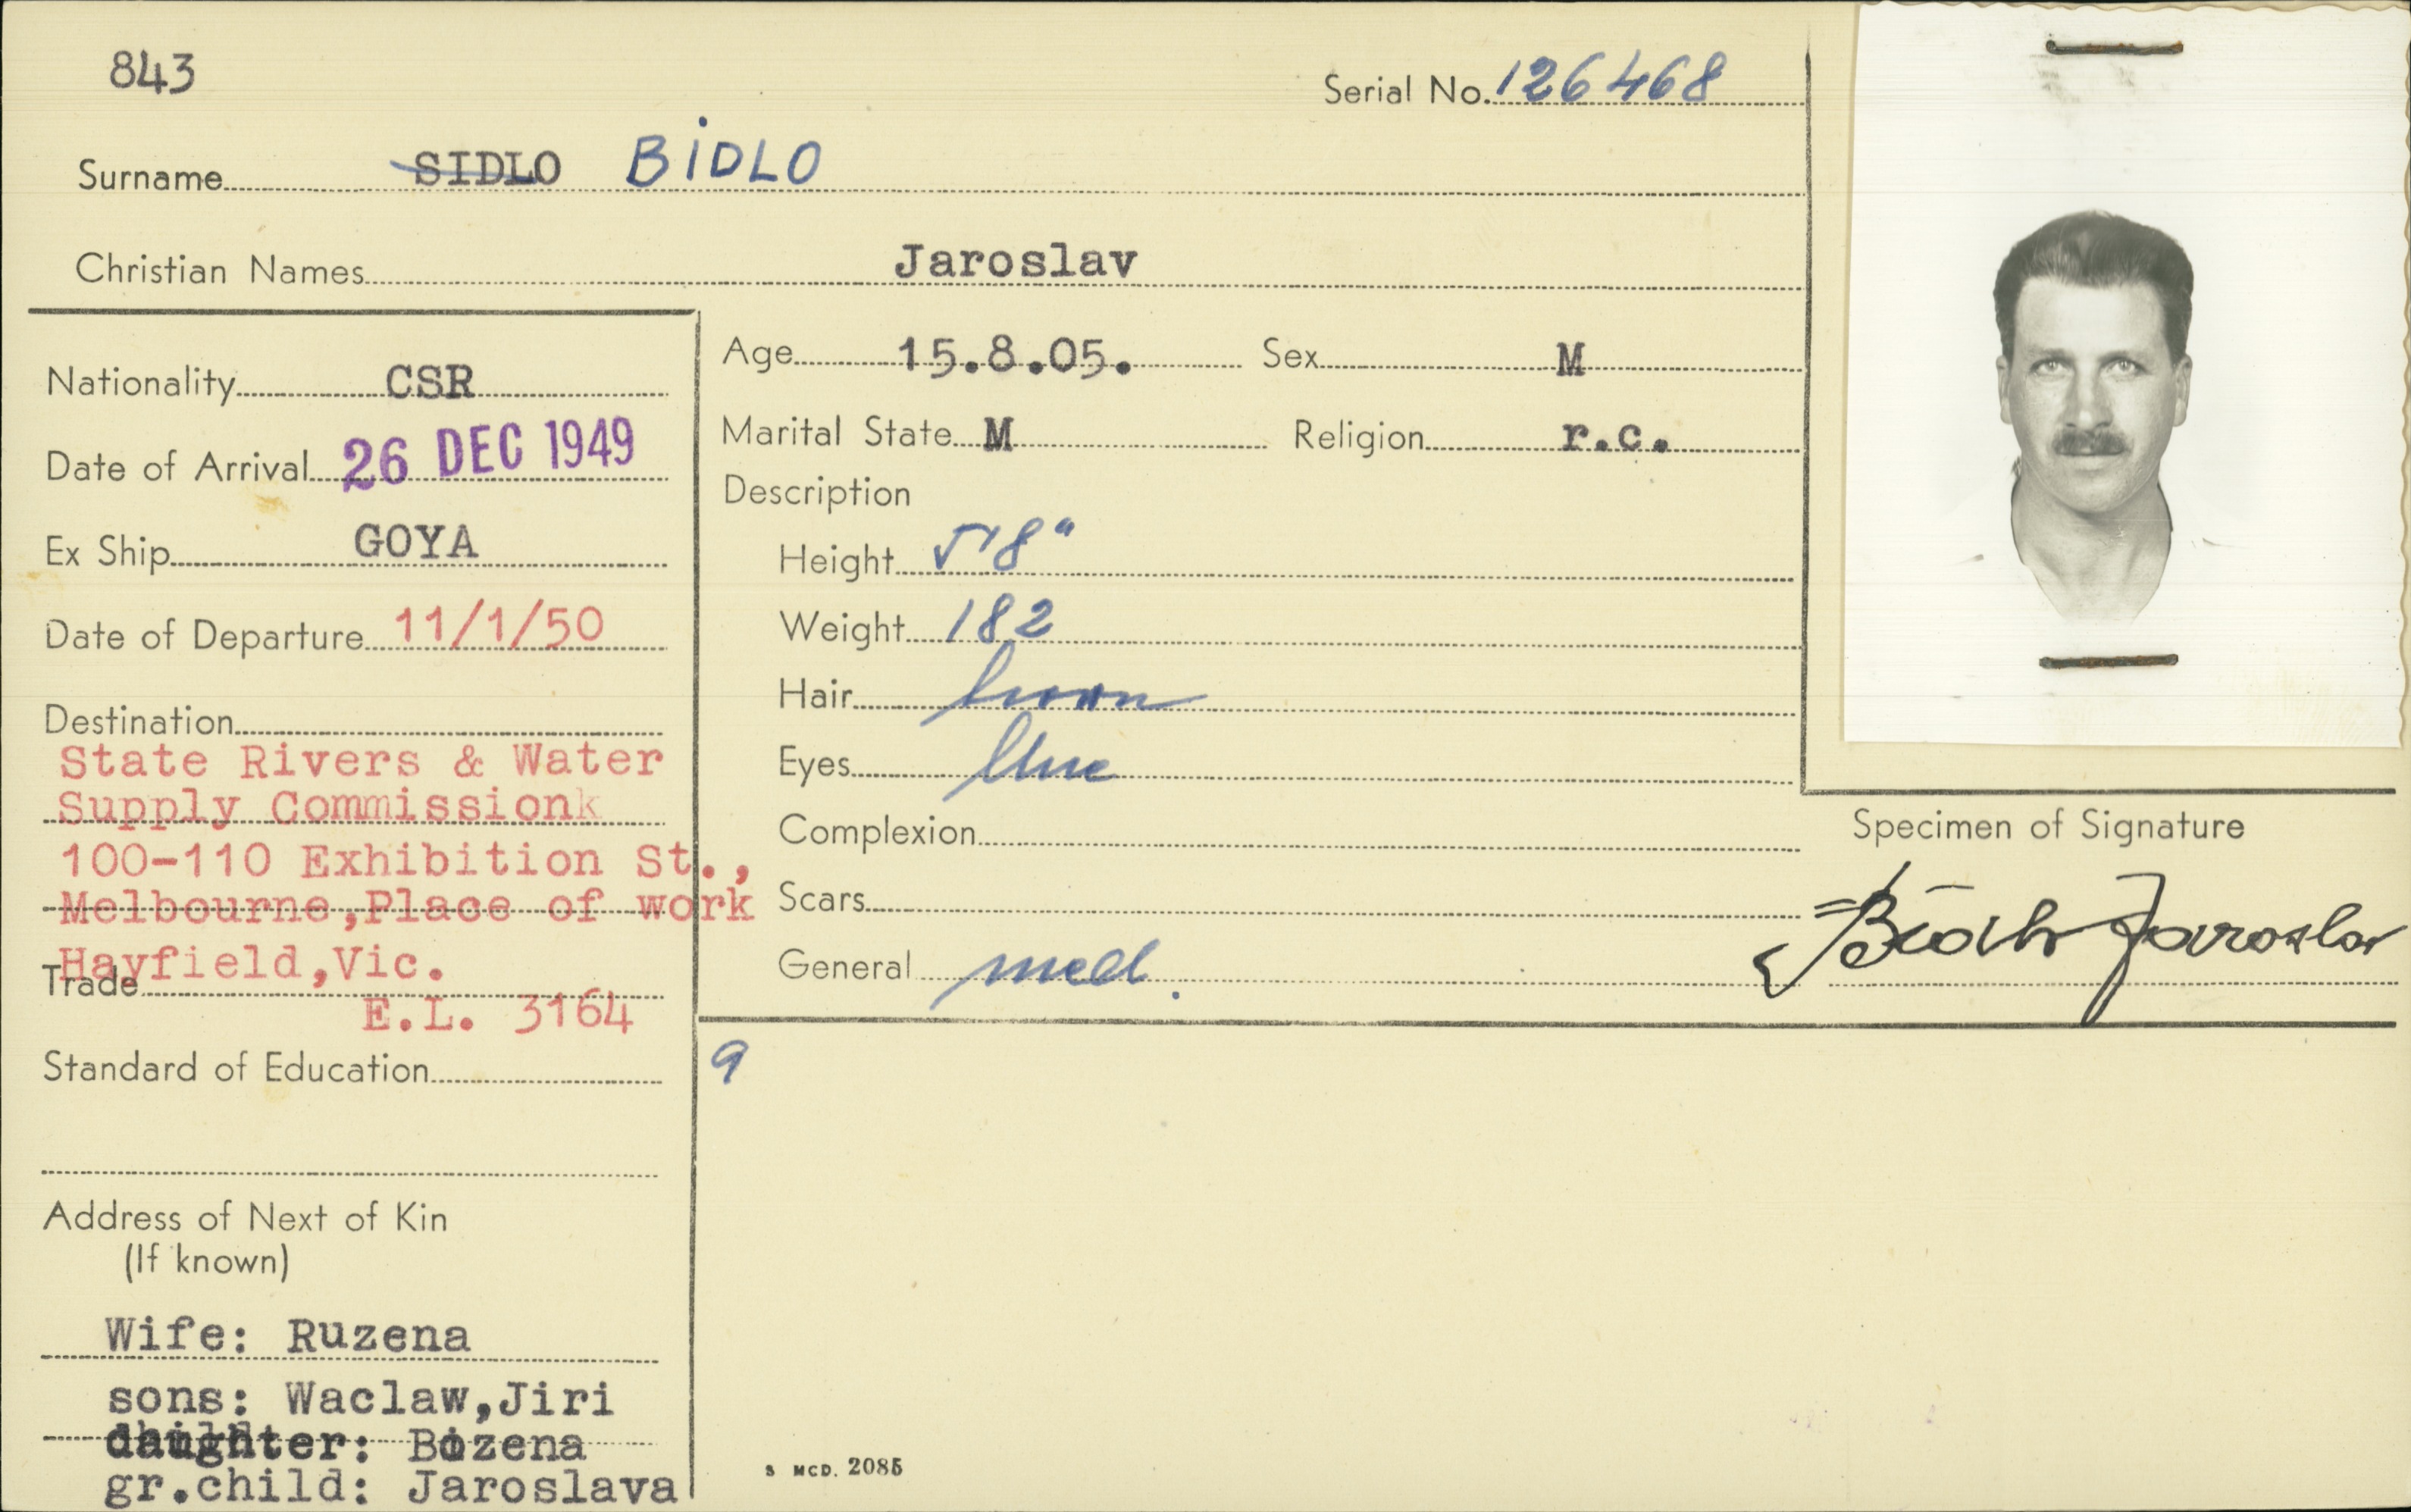 843
Serial No. 126468
Surname SIDLO BiDLO
Christian Names Jaroslav
Nationality CSR
Date of Arrival 26 DEC 1949
Ex Ship GOYA
Date of Departure 11/1/50
Destination
State Rivers & Water
Supply Commissionk
100-110 Exhibition St.,
Melbourne,Place of work
Hayfield,Vic.
Trade
E.L. 3164
Standard of Education
Address of Next of Kin
(If known)
Wife: Ruzena
sons: Waclaw,Jiri
daughter: Bozena
gr.child: Jaroslava
Age 15.8.05. Sex M
Marital State M Religion r.c.
Description
Height 5'8"
Weight 182
Hair brown
Eyes blue
Complexion
Scars
General med.
9
S MCD. 2085
Specimen of Signature
Bidlo Jaroslav